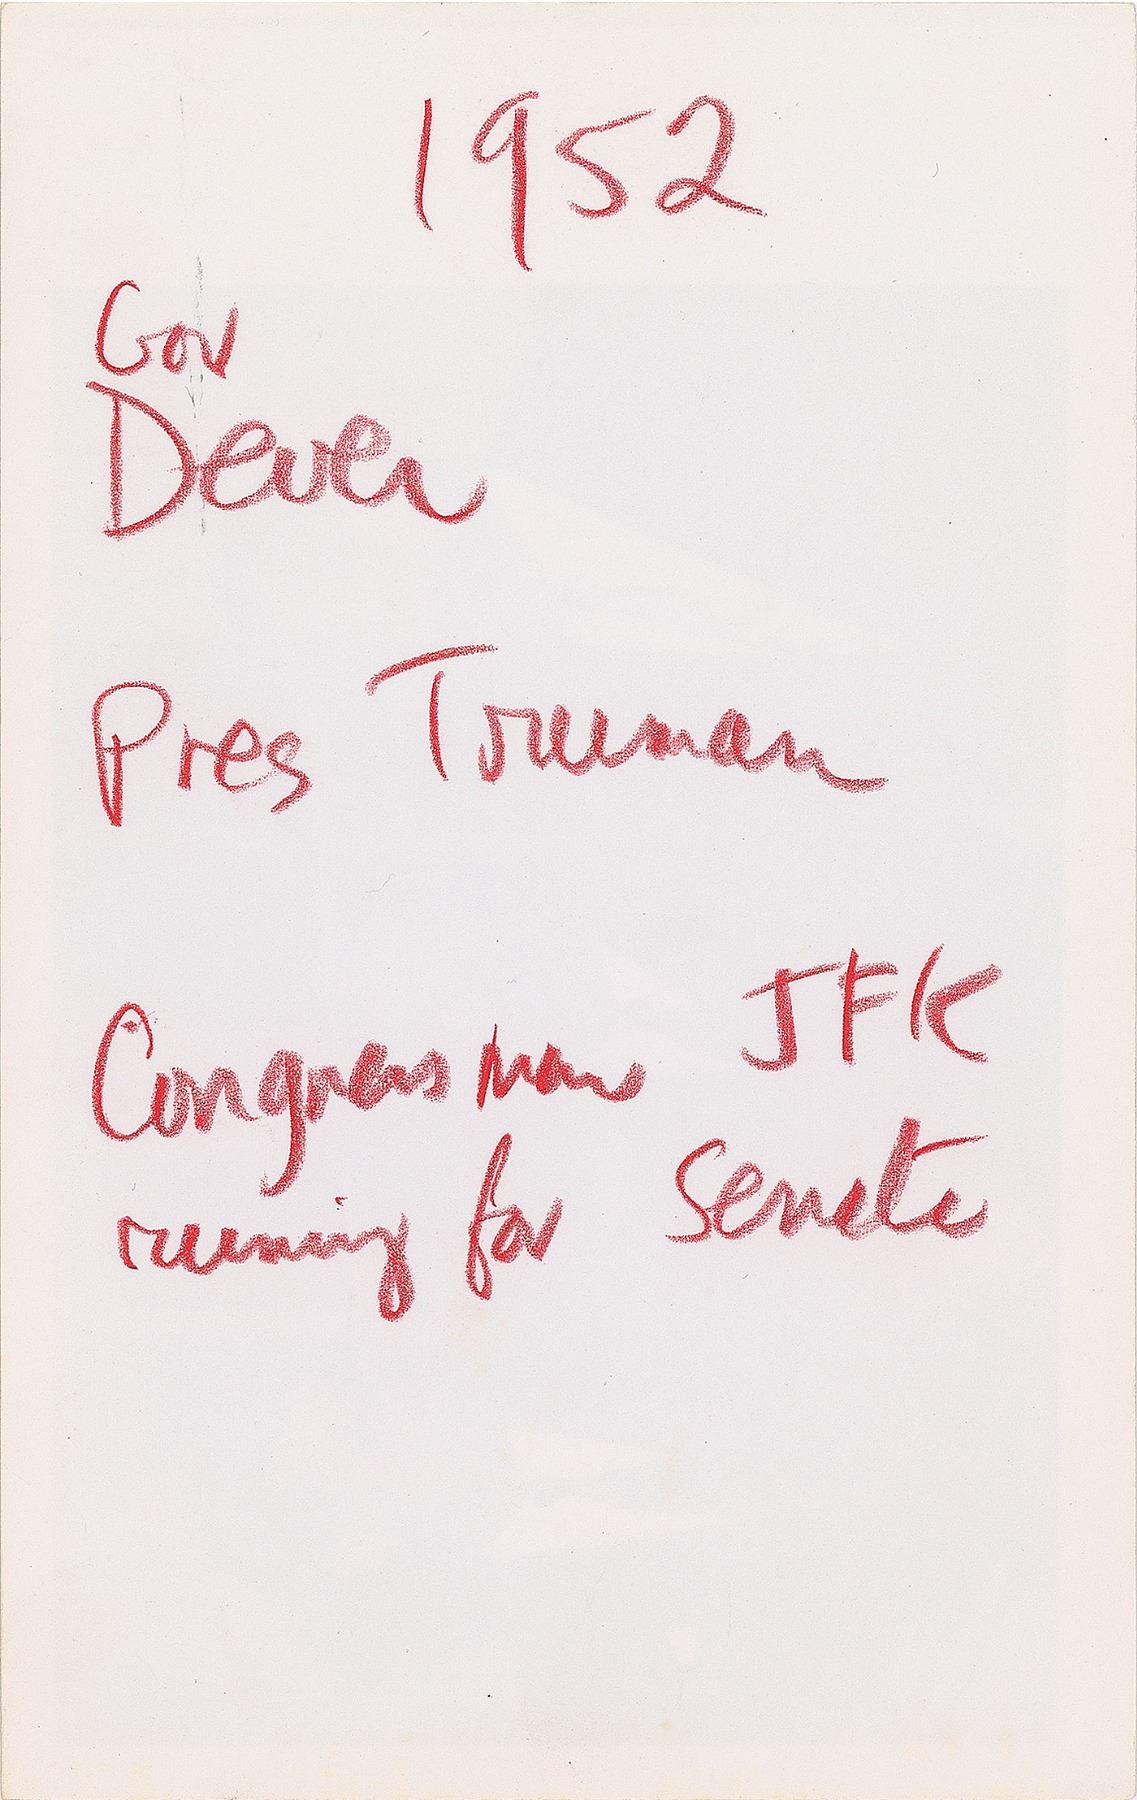 1952
Gov
Dever
Pres Truman
Congressman JFK
running for Senate